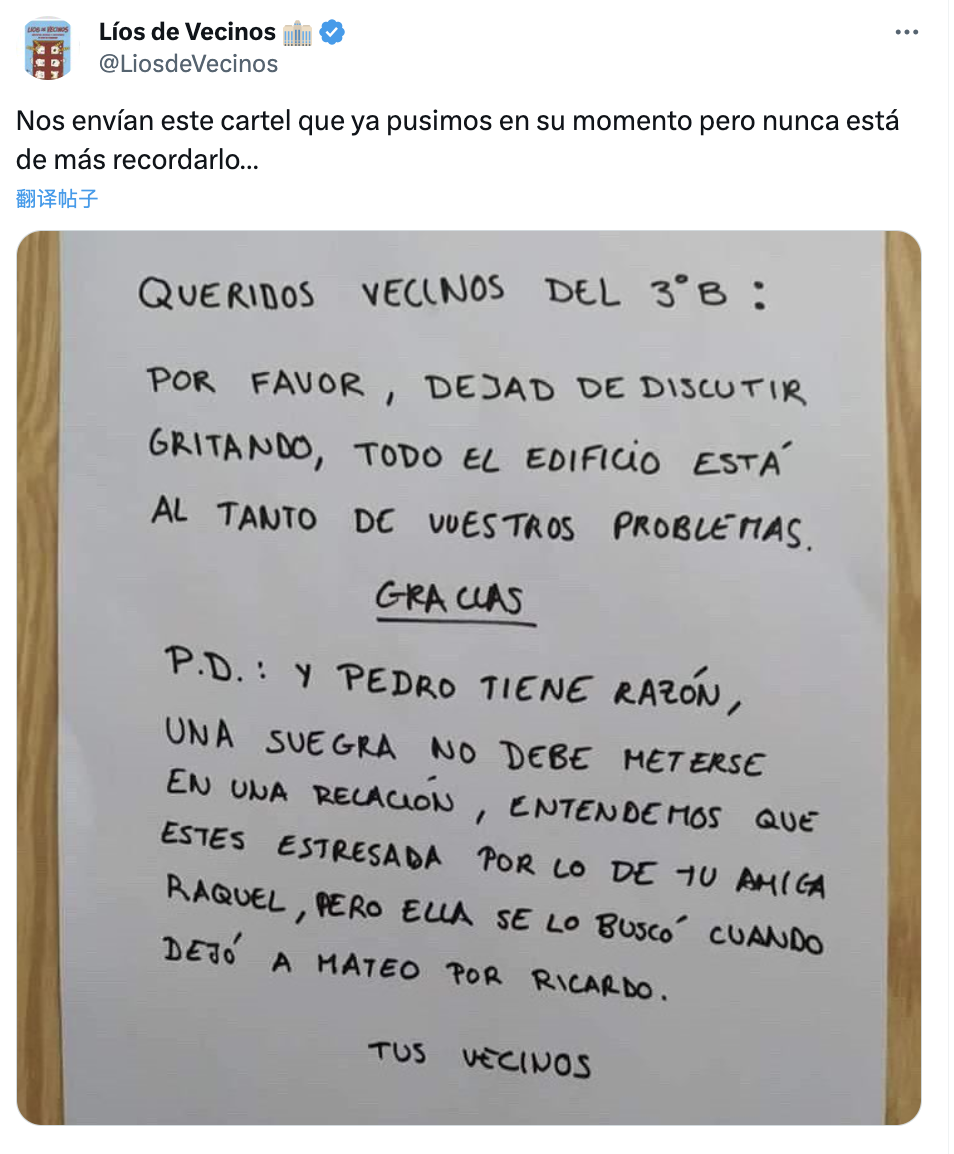 Líos de Vecinos
@LiosdeVecinos
Nos envían este cartel que ya pusimos en su momento pero nunca está
de más recordarlo...
翻译帖子
QUERIDOS VECINOS DEL 3°B :
POR FAVOR, DEJAD DE DISCUTIR
GRITANDO, TODO EL EDIFICIO ESTÁ
AL TANTO DE VUESTROS PROBLEMAS.
GRACIAS
P.D.: Y PEDRO TIENE RAZÓN,
UNA SUEGRA NO DEBE METERSE
EN UNA RELACIÓN, ENTENDEMOS QUE
ESTES ESTRESADA POR LO DE TU AMIGA
RAQUEL, PERO ELLA SE LO BUSCÓ CUANDO
DEJÓ A MATEO POR RICARDO.
TUS VECINOS